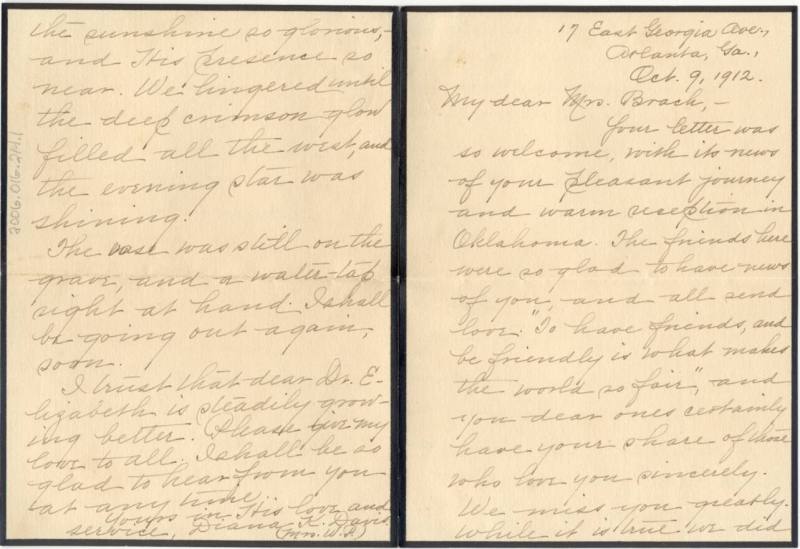 17 East Georgia Ave.,
Atlanta, Ga.,
Oct. 9, 1912.
My dear Mrs. Brach,-
Your letter was
so welcome, with its news
of your pleasant journey
and warm reception in
Oklahoma. The friends here
were so glad to have news
of you, and all send
love. "To have friends, and
be friendly is what makes
the world so fair", and
you dear ones certainly
have your share of those
who love you sincerely.
We miss you greatly.
While it is true we did
the sunshine so glorious,-
and His Presence so
near. We lingered until
the deep crimson glow
filled all the west, and
the evening star was
shining.
The vase was still on the
grave, and a water-tap
right at hand. I shall
be going out again,
soon.
I trust that dear Dr. E-
lizabeth is steadily grow-
ing better. Please give my
love to all. I shall be so
glad to hear from you
at any time.
Yours in His love and
service, Diana K. Davis
(Mrs. W.
2006.016.2H.1